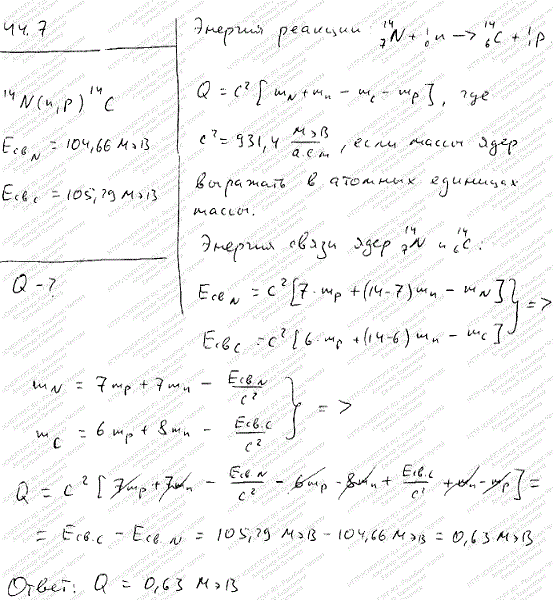 44.7
¹⁴N(n,p)¹⁴C
Eсв N = 104,66 МэВ
Eсв C = 105,29 МэВ
Q - ?
Энергия реакции: ¹⁴₇N + ¹₀n → ¹⁴₆C + ¹₁p.
Q = c² [mN + mn - mC - mp], где
c² = 931,4 МэВ/а.е.м, если массы ядер
выражать в атомных единицах
массы.
Энергия связи ядер ¹⁴₇N и ¹⁴₆C:
Eсв N = c² [7·mp + (14-7)mn - mN] } =>
Eсв C = c² [6·mp + (14-6)mn - mC]
mN = 7mp + 7mn - Eсв.N/c² } =>
mC = 6mp + 8mn - Eсв.C/c²
Q = c² [7mp + 7mn - Eсв.N/c² - 6mp - 8mn + Eсв.C/c² + mn - mp] =
= Eсв.C - Eсв.N = 105,29 МэВ - 104,66 МэВ = 0,63 МэВ
Ответ: Q = 0,63 МэВ